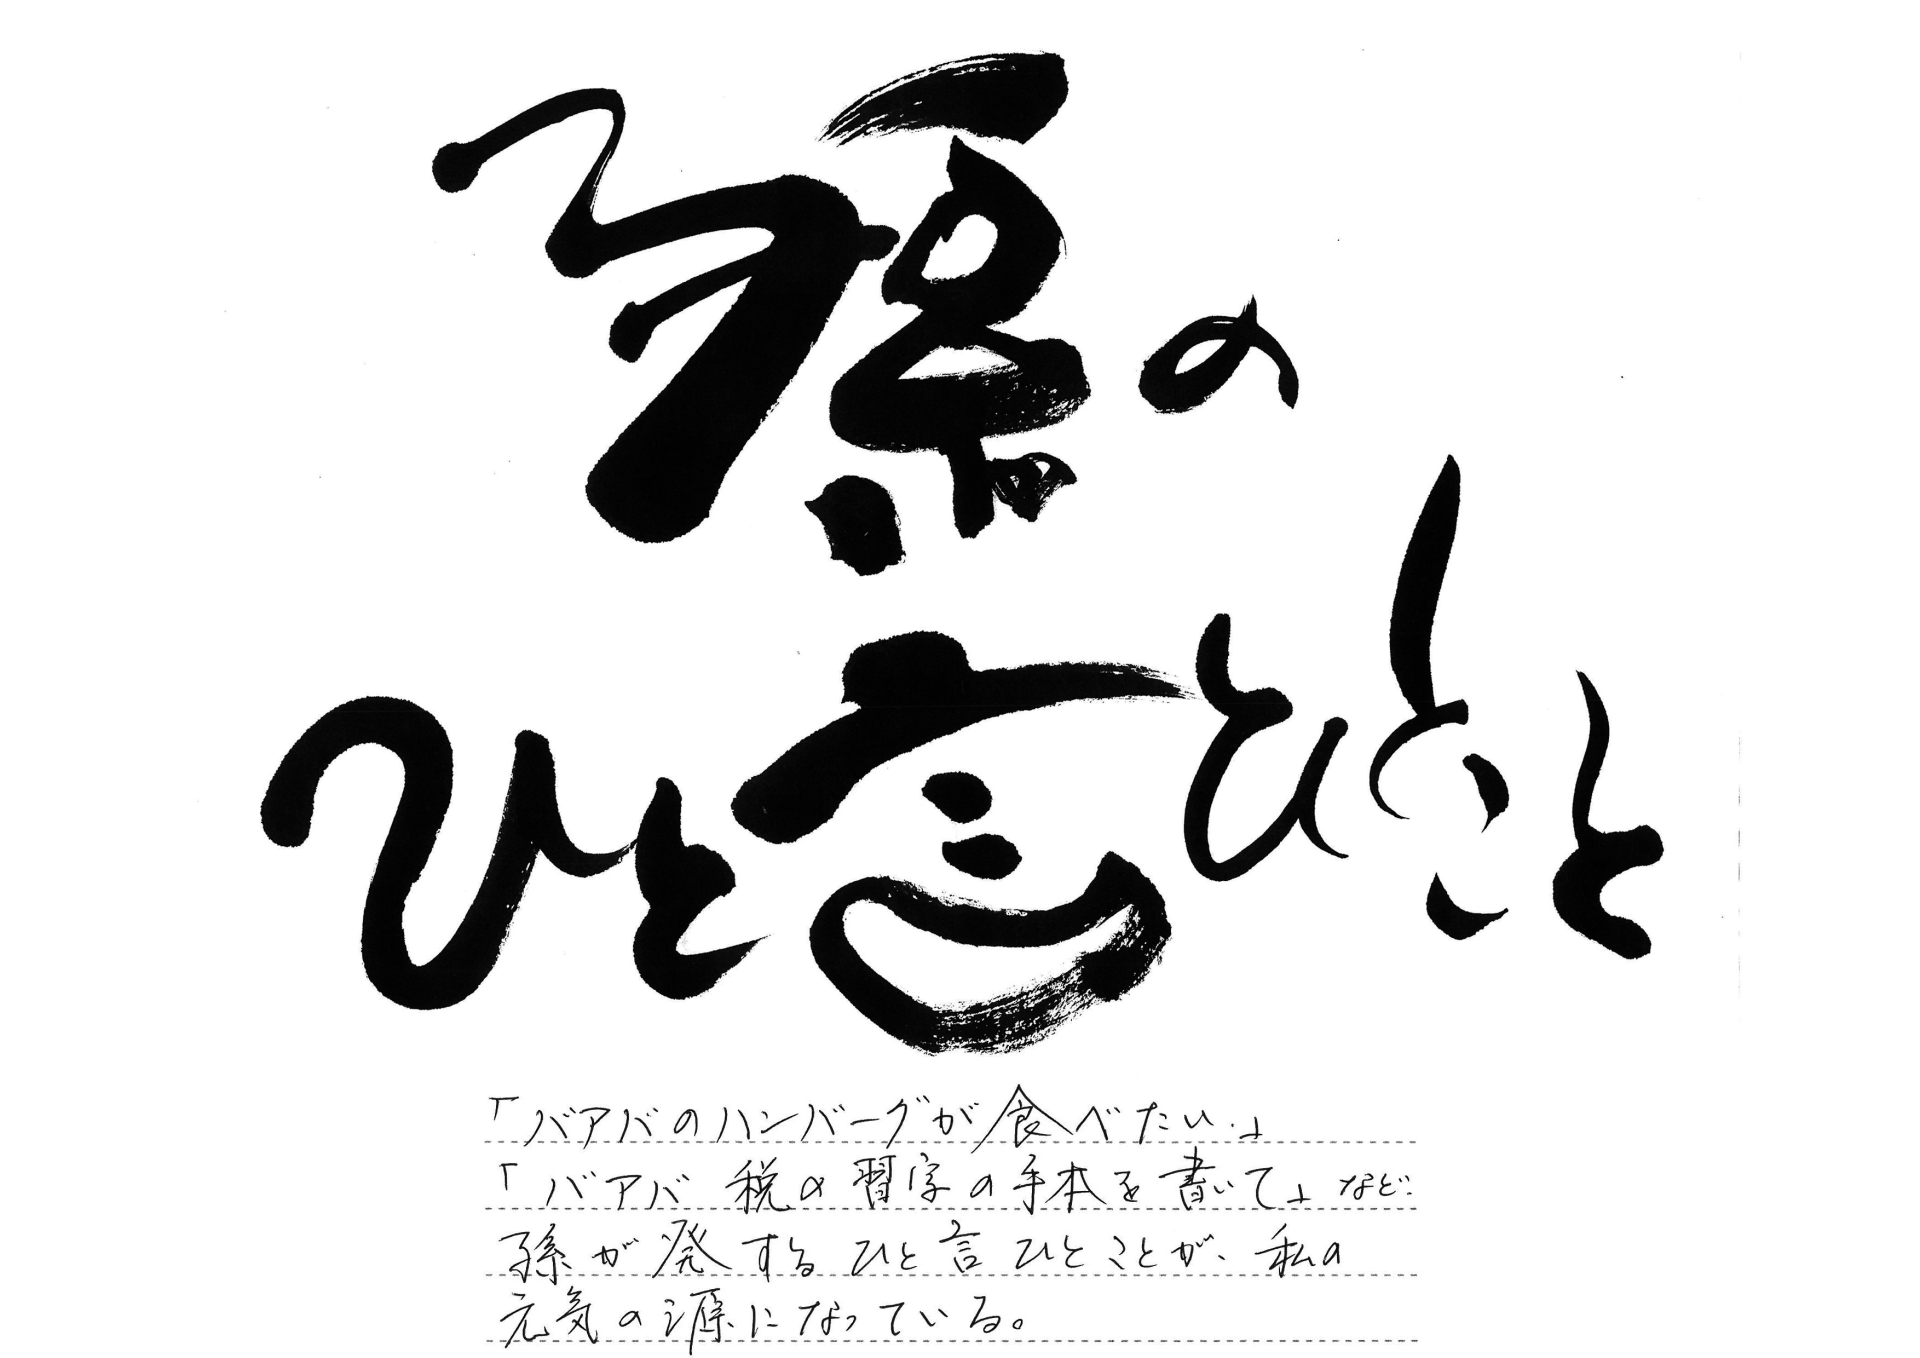 孫の
ひと言ひとこと
「バアバのハンバーグが食べたい.」
「バアバ 税の習字の手本を書いて」など.
孫が発するひと言ひとことが、私の
元気の源になっている。